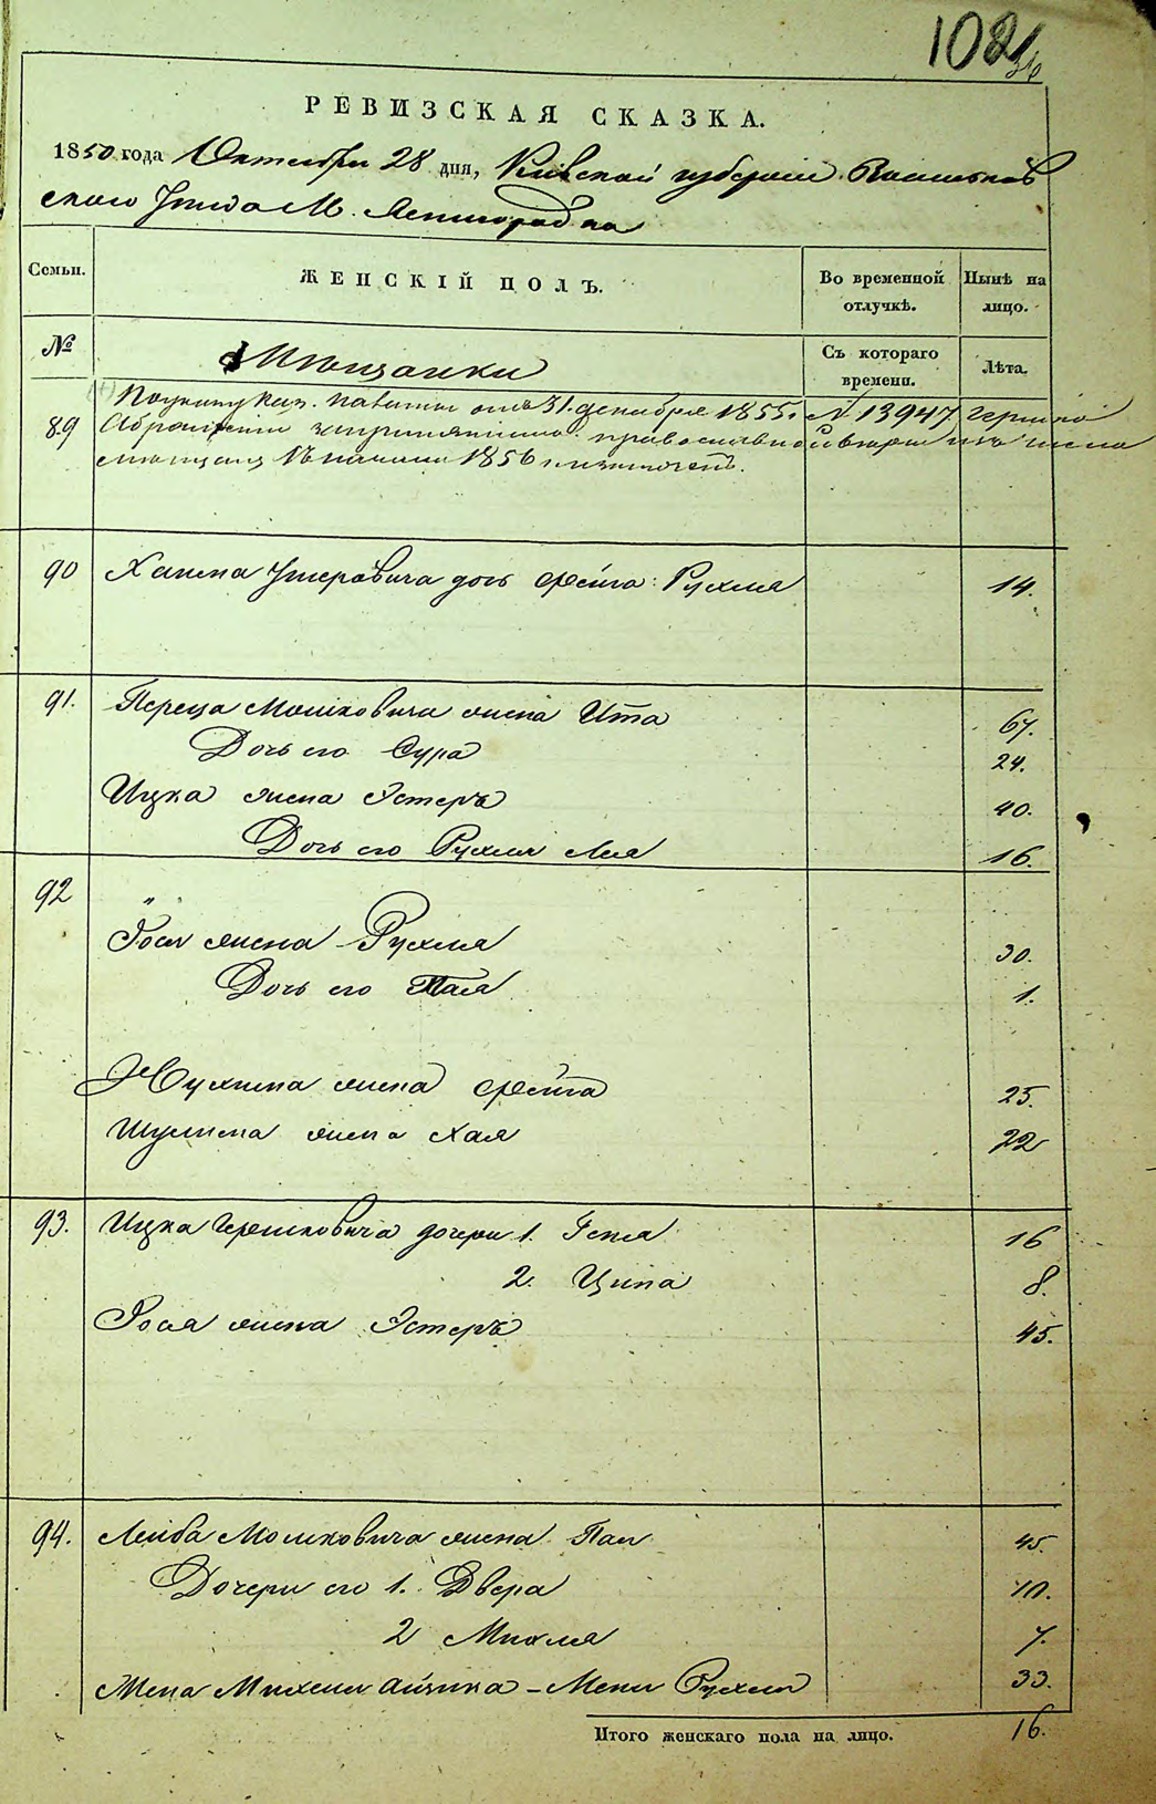 102
РЕВИЗСКАЯ СКАЗКА.
1850 года Октября 28 дня, Кіевской губерніи Васильков
скаго Уезда М.
Семьи. ЖЕНСКІЙ ПОЛЪ. Во временной отлучкѣ. Нынѣ на лицо.
№ Мещанки Съ котораго времени. Лѣта.
89 По указу Каз. палаты отъ 31 декабря 1855. № 13947 Гершко
православной вѣры изъ числа
мещанъ съ 1856 исключенъ.
90 дочь Фейга Рухля 14.
91. Переца Мошковича жена Ита 67.
Дочь его Сура 24.
Ицка жена Эстеръ 40.
Дочь его Рухля Лея 16.
92 "
Жена Рухля 30.
Дочь его 1.
Нухима жена Фейга 25.
Шулима жена Хая 22
93. Ицка Гершковича дочери 1. Геня 16
2. Ципа 8.
жена Эстеръ 45.
94. Лейба Мошковича жена Пая 45.
Дочери его 1. Двера 10.
2 Михля 7.
Жена Михеля Айзика - Меня Рухля 33.
Итого женскаго пола на лицо. 16.